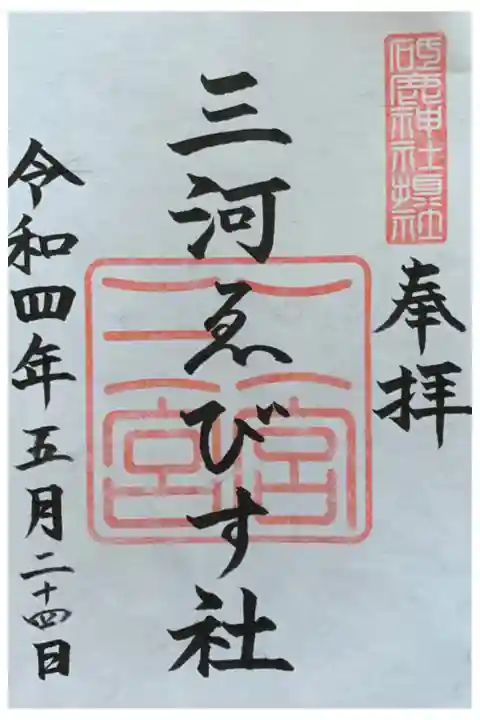 砥鹿神社摂社
奉拝
三河ゑびす社
令和四年五月二十四日